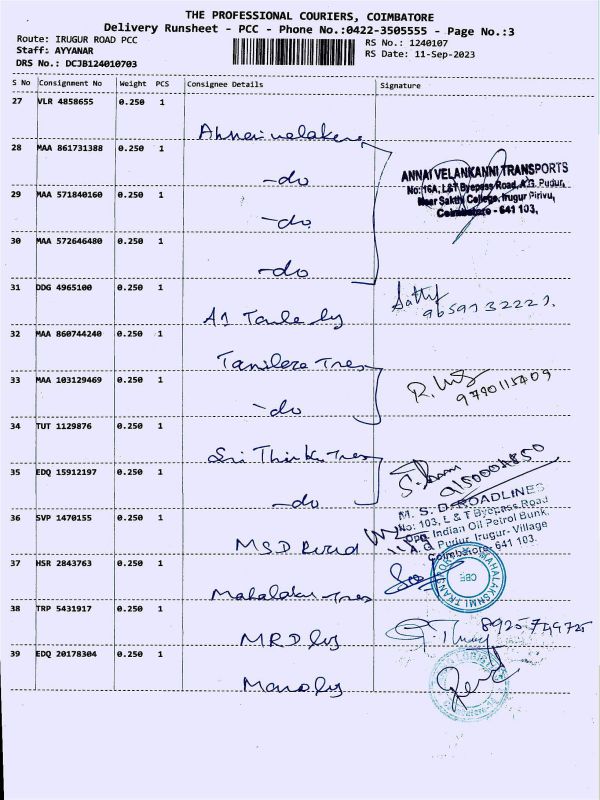 THE PROFESSIONAL COURIERS, COIMBATORE
Delivery Runsheet - PCC - Phone No.:0422-3505555 - Page No.:3
Route: IRUGUR ROAD PCC
Staff: AYYANAR
DRS No.: DCJB124010703
RS No.: 1240107
RS Date: 11-Sep-2023
S No Consignment No Weight PCS Consignee Details Signature
27 VLR 4858655 0.250 1
28 MAA 861731388 0.250 1 -do
ANNAI VELANKANNI TRANSPORTS
No: 16A, L&T Byepass Road, A.G. Pudur,
Near Sakthi College, Irugur Pirivu,
Coimbatore - 641 103.
29 MAA 571840160 0.250 1 -do
30 MAA 572646480 0.250 1 -do
31 DDG 4965100 0.250 1 A1
32 MAA 860744240 0.250 1
33 MAA 103129469 0.250 1 -do
34 TUT 1129876 0.250 1 Sri
35 EDQ 15912197 0.250 1 -do
M. S. D. ROADLINES
No: 103, L & T Byepass Road
Opp. Indian Oil Petrol Bunk,
A.G. Pudur, Irugur- Village
Coimbatore- 641 103.
36 SVP 1470155 0.250 1 MSD
37 HSR 2843763 0.250 1
MAHALAKSHMI TRANSPORT
CBE
38 TRP 5431917 0.250 1 MRD
8925749725
39 EDQ 20178304 0.250 1